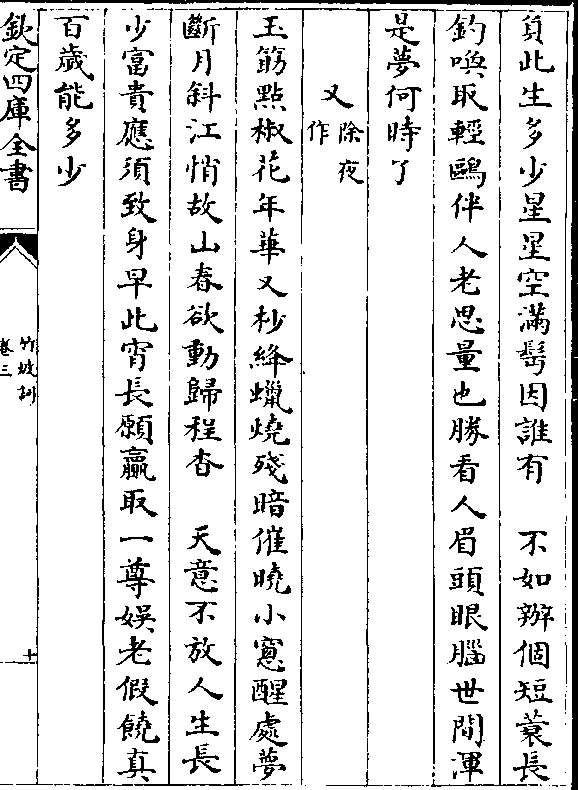 負此生多少星星空滿髩因誰有　不如辦個短蓑長
釣喚取輕鷗伴人老思量也勝看人眉頭眼腦世間渾
是夢何時了
又除夜作
玉筯點椒花年華又杪絳蠟燒殘暗催曉小窻醒處夢
斷月斜江悄故山春欲動歸程杳　天意不放人生長
少富貴應須致身早此宵長願贏取一尊娛老假饒真
百歲能多少
欽定四庫全書
竹坡詞
卷三
十